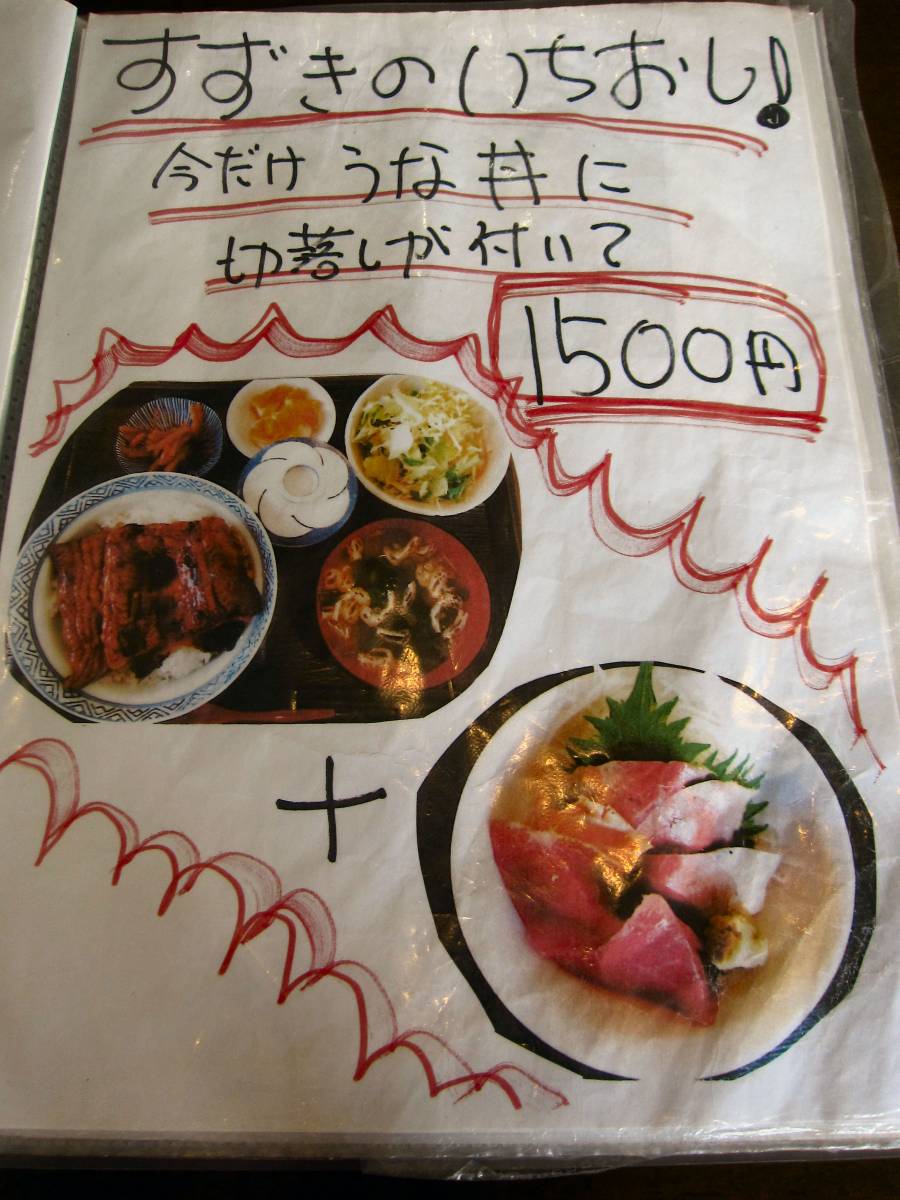 すずきのいちおし!
今だけ うな丼に
切落しが付いて
1500円
+